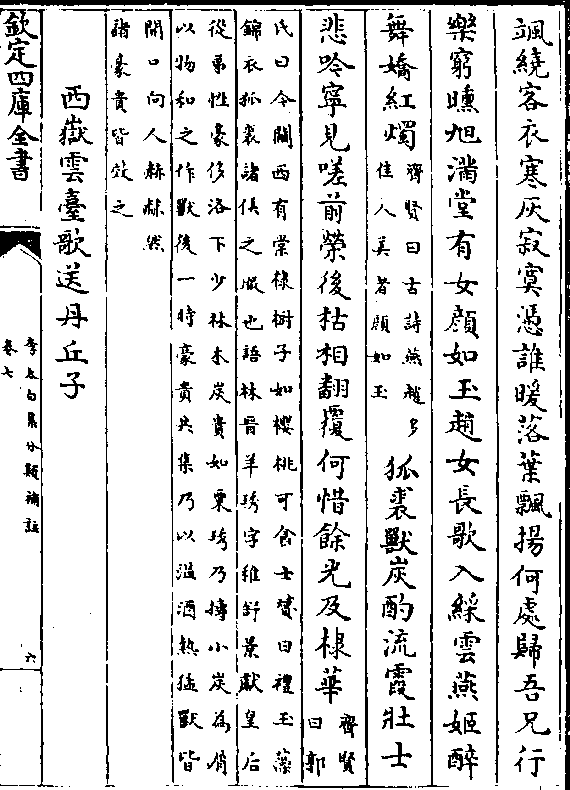 颯繞客衣寒灰寂寞憑誰暖落葉飄揚何處歸吾兄行
樂窮曛旭滿堂有女顔如玉趙女長歌入綵雲燕姬醉
舞嬌紅燭
齊賢曰古詩燕趙多
佳人美者顔如玉
狐裘獸炭酌流霞壯士
悲吟寧見嗟前榮後枯相翻覆何惜餘光及棣華
齊賢
曰郭
氏曰今關西有棠棣樹子如櫻桃可食士贇曰禮玉藻
錦衣狐裘諸侯之服也語林晉羊琇字稚舒景獻皇后
從弟性豪侈洛下少林木炭貴如粟琇乃擣小炭為屑
以物和之作獸後一時豪貴共集乃以温酒熱猛獸皆
開口向人赫赫然
諸豪貴皆效之
西嶽雲臺歌送丹丘子
欽定四庫全書
李太白集分類補註
卷七
六